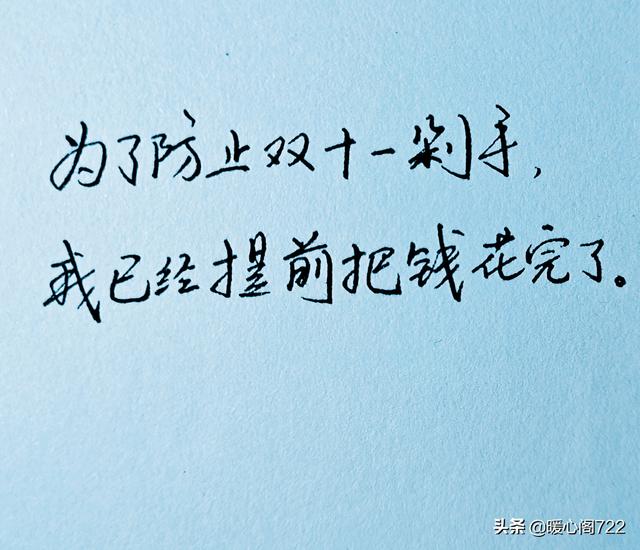 为了防止双十一剁手，
我已经提前把钱花完了。
头条 @暖心阁722